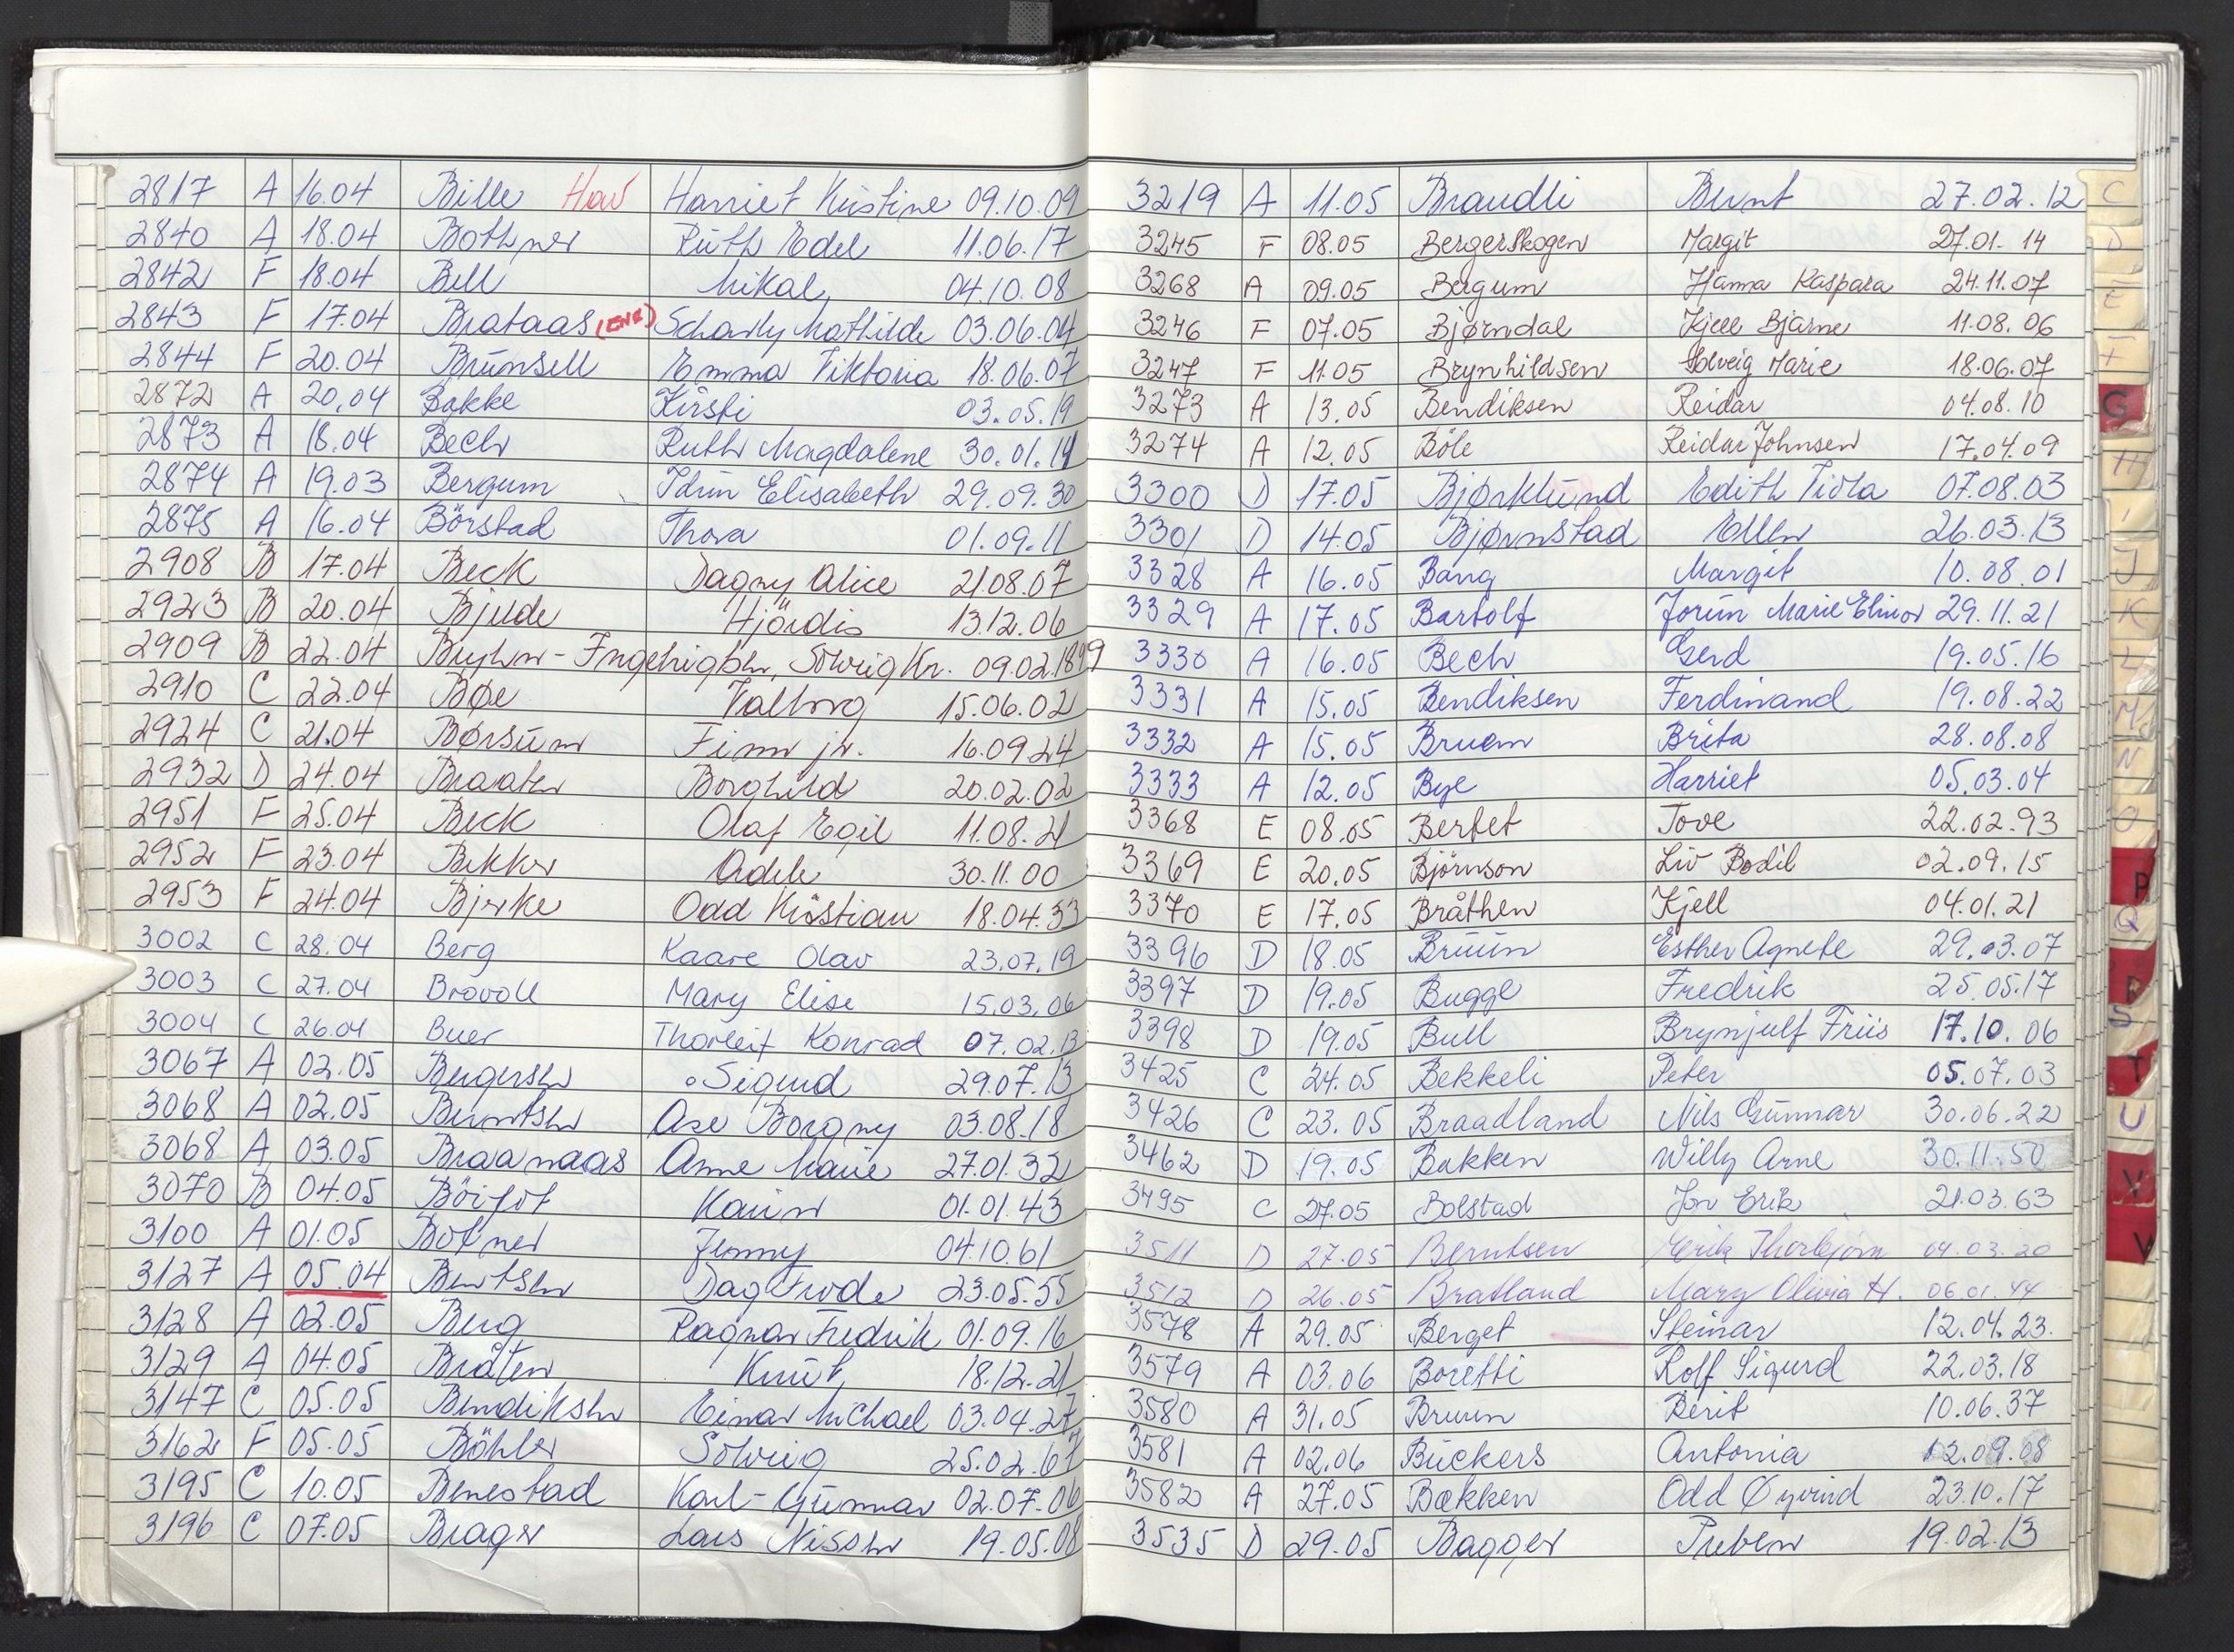 2817 A 16.04 Bille Hav Harriet Kristine 09.10.09
2840 A 18.04 Bothner Ruth Edel 11.06.17
2842 F 18.04 Bell Mikal 04.10.08
2843 F 17.04 Brataas (ENE) Scharly Mathilde 03.06.04
2844 F 20.04 Brunsell Emma Viktoria 18.06.07
2872 A 20.04 Bakke Kirsti 03.05.19
2873 A 18.04 Bech Ruth Magdalene 30.01.14
2874 A 19.03 Bergum Idun Elisabeth 29.09.30
2875 A 16.04 Börstad Thora 01.09.11
2908 B 17.04 Beck Dagny Alice 21.08.07
2923 B 20.04 Bjelde Hjördis 13.12.06
2909 B 22.04 Bryhn - Ingebrigtsen, Solveig Kr. 09.02.1899
2910 C 22.04 Bøe Valborg 15.06.02
2924 C 21.04 Børsum Finn jr. 16.09.24
2932 D 24.04 Braaten Borghild 20.02.02
2951 F 25.04 Beck Olaf Egil 11.08.21
2952 F 23.04 Bekker Adele 30.11.00
2953 F 24.04 Bjerke Odd Kristian 18.04.33
3002 C 28.04 Berg Kaare Olav 23.07.19
3003 C 27.04 Brovoll Mary Elise 15.03.06
3004 C 26.04 Buer Thorleif Konrad 07.02.13
3067 A 02.05 Bergersen Sigurd 29.07.13
3068 A 02.05 Berntsen Åse Borgny 03.08.18
3068 A 03.05 Braanaas Anne Marie 27.01.32
3070 B 04.05 Karin 01.01.43
3100 A 01.05 Botner Jenny 04.10.61
3127 A 05.04 Berntsen Dag Frode 23.05.55
3128 A 02.05 Berg Ragnar Fredrik 01.09.16
3129 A 04.05 Bråten Knut 18.12.21
3147 C 05.05 Bendiksen Einar Michael 03.04.27
3162 F 05.05 Böhler Solveig 25.02.67
3195 C 10.05 Benestad Karl-Gunnar 02.07.06
3196 C 07.05 Brager Lars Nissen 19.05.08
3219 A 11.05 Brandli Bernt 27.02.12
3245 F 08.05 Bergerskogen Margit 27.01.14
3268 A 09.05 Bergum Hanna Kaspara 24.11.07
3246 F 07.05 Bjørndal Kjell Bjarne 11.08.06
3247 F 11.05 Brynhildsen Solveig Marie 18.06.07
3273 A 13.05 Bendiksen Reidar 04.08.10
3274 A 12.05 Böle Reidar Johnsen 17.04.09
3300 D 17.05 Bjørklund Edith Viola 07.08.03
3301 D 14.05 Bjørnstad Ellen 26.03.13
3328 A 16.05 Bang Margit 10.08.01
3329 A 17.05 Bartolf Jorun Marie Elinor 29.11.21
3330 A 16.05 Bech Gerd 19.05.16
3331 A 15.05 Bendiksen Ferdinand 19.08.22
3332 A 15.05 Bruem Brita 28.08.08
3333 A 12.05 Bye Harriet 05.03.04
3368 E 08.05 Bertet Tove 22.02.93
3369 E 20.05 Björnson Liv Bodil 02.09.15
3370 E 17.05 Bråthen Kjell 04.01.21
3396 D 18.05 Bruun Esther Agnete 29.03.07
3397 D 19.05 Bugge Fredrik 25.05.17
3398 D 19.05 Bull Brynjulf Friis 17.10.06
3425 C 24.05 Bekkeli Peter 05.07.03
3426 C 23.05 Braadland Nils Gunnar 30.06.22
3462 D 19.05 Bakken Willy Arne 30.11.50
3495 C 27.05 Bolstad Jon Erik 21.03.63
3511 D 27.05 Berntsen Erik Thorbjørn 04.03.20
3512 D 26.05 Bratland Mary Olivia H. 06.01.44
3578 A 29.05 Berget Steinar 12.04.23.
3579 A 03.06 Boretti Rolf Sigurd 22.03.18
3580 A 31.05 Bruun Berit 10.06.37
3581 A 02.06 Buckers Antonia 12.09.08
3582 A 27.05 Bækken Odd Øyvind 23.10.17
3535 D 29.05 Bagger Preben 19.02.13
C
D
E
F
G
H
I
J
K
L
M
N
O
P
Q
R
S
T
U
V
V